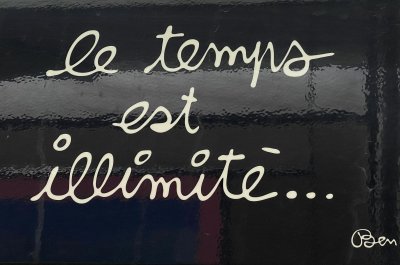 le temps
est
illimité...
Ben